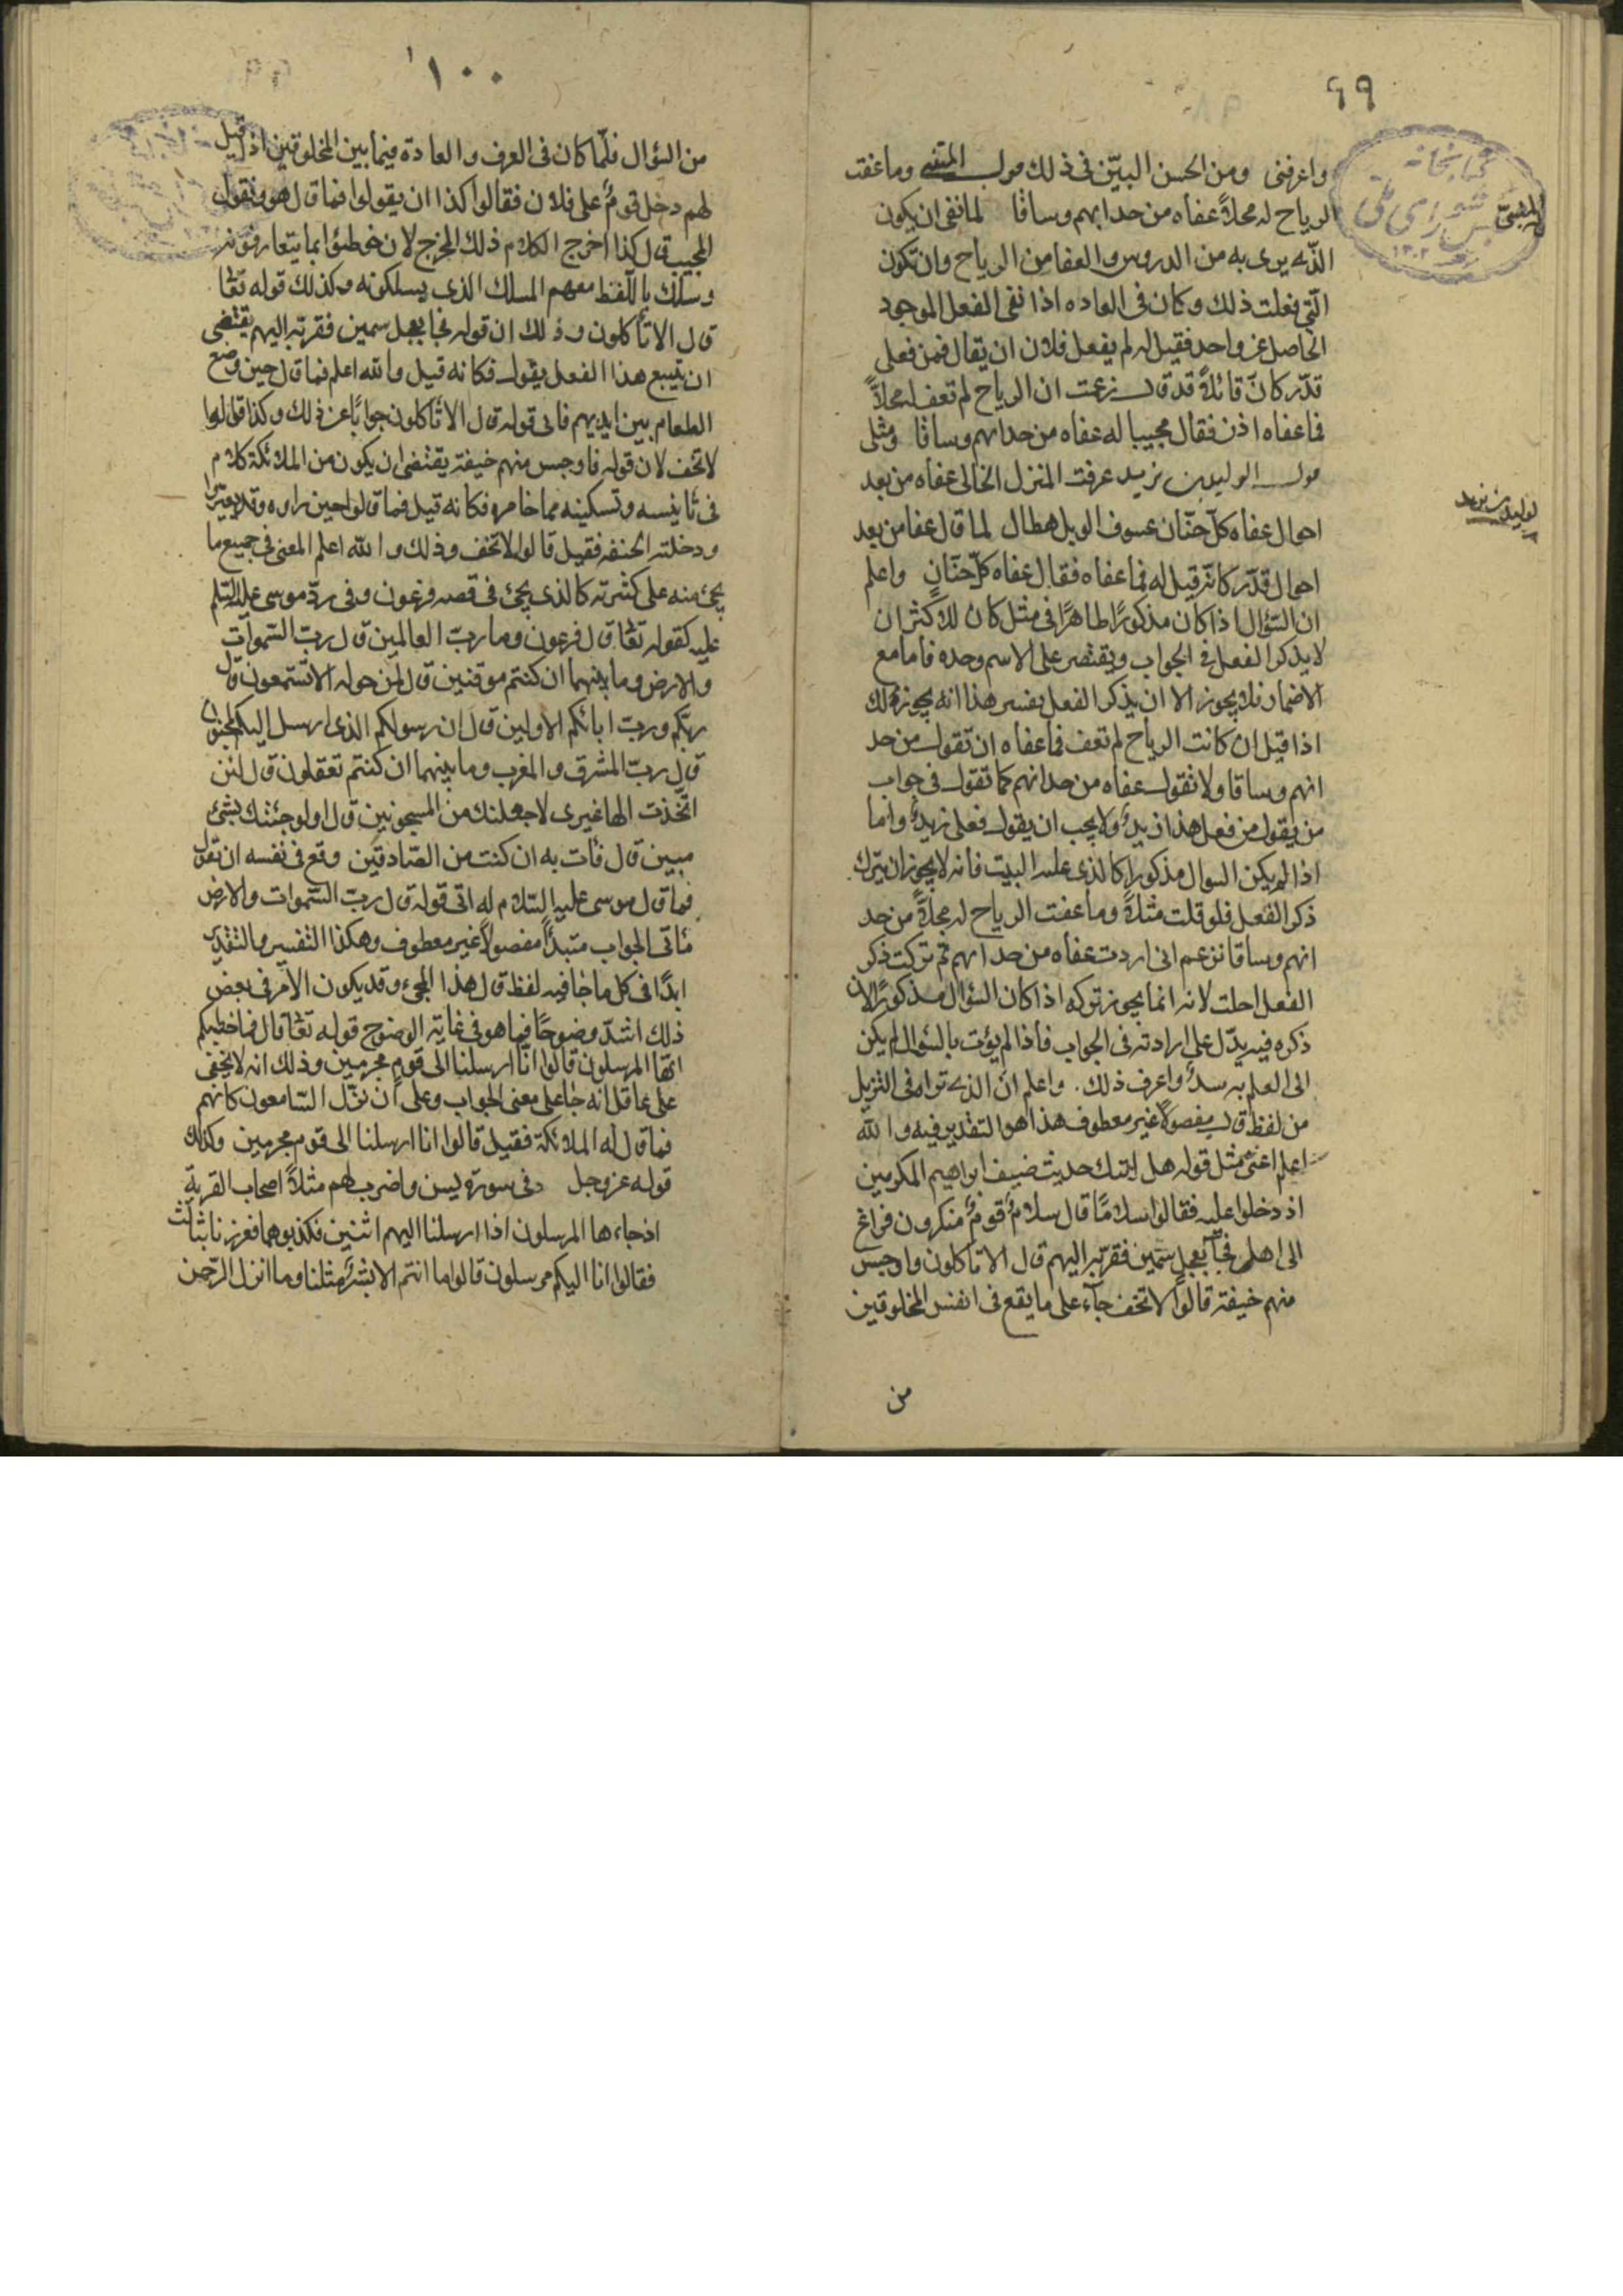 ٩٩
واعرفنى ومن الحسن البيّن فى ذلك قول المتنبى وما عفت
الرياح له محلاً عفاه من حدا بهم وساقا لما نفى ان يكون
الذى يرى به من الدروس والعفا من الرياح وان تكون
الّتى فعلت ذلك وكان فى العاده اذا نفى الفعل الموجود
الحاصل عن واحد فقيل لم يفعل فلان ان يقال فمن فعل
قدّر كانّ قائلاً قد قال زعمت ان الرياح لم تعف له محلاً
فما عفاه اذن فقال مجيبا له عفاه من حدابهم وساقا ومثل
قول الوليد بن يزيد عرفت المنزل الخالى عفاه من بعد
احوال عفاه كل حنّان عسوف الوبل هطال لما قال عفا من بعد
احوال قدّر كانّه قيل له فما عفاه فقال عفاه كلّ حنّان واعلم
ان السّؤال اذا كان مذكورًا ظاهرًا فى مثل كان للاكثر ان
لا يذكر الفعل فى الجواب ويقتصر على الاسم وحده فاما مع
الاضمار فلا يجوز الا ان يذكر الفعل يفسر هذا انه يجوز لك
اذا قيل ان كانت الرياح لم تعف فما عفاه ان تقول من حد
انهم وساقا ولا تقول عفاه من حدانهم كما تقول فى جواب
من يقول من فعل هذا زيدٌ ولا يجب ان يقول فعل زيدٌ وانما
اذا لم يكن السوال مذكورا كالذى عليه البيت فانه لا يجوز ان يترك
ذكر الفعل فلو قلت مثلاً وما عفت الرياح له محلاً من حد
انهم وساقا تزعم انى اردت عفاه من حدانهم ثم تركت ذكر
الفعل احلت لانه انما يجوز تركه اذا كان السّؤال مذكورًا لان
ذكره فيه يدّل على ارادته فى الجواب فاذا لم يؤت بالسّؤال لم يكن
الى العلم به سبيلٌ واعرف ذلك . واعلم انّ الذى تراه فى التنزيل
من لفظ قال مفصولاً غير معطوف هذا هو التقدير فيه والله
اعلم اعنى مثل قوله هل اتيك حديث ضيف ابراهيم المكرمين
اذ دخلوا عليه فقالوا سلامًا قال سلامٌ قومٌ منكرون فراغ
الى اهله فجآء بعجلٍ سمين فقرّبه اليهم قال الا تاكلون واوجس
منهم خيفة قالوا لا تخف جآء على ما يقع فى انفس المخلوقين
من
المتنبىّ
لوليد بن يزيد
١٠٠
من السّؤال فلّما كان فى العرف والعادة فيما بين المخلوقين اذا قيل
لهم دخل قومٌ على فلان فقالوا كذا ان يقولوا فما قال هو ويقول
المجيب قال كذا اخرج الكلام ذلك المخرج لان خوطبوا بما يتعارفونه
وسلك باللّفظ معهم المسلك الذى يسلكونه وكذلك قوله تعالى
قال الا تأكلون وذلك ان قوله فجا بعجل سمين فقرّبه اليهم يقتضى
ان يتبع هذا الفعل بقول فكانه قيل والله اعلم فما قال حين وضع
الطعام بين ايديهم فاتى قوله قال الا تاكلون جوابًا عن ذلك وكذا قالوا
لا تخف لان قوله فاوجس منهم خيفة يقتضى ان يكون من الملائكة كلام
فى تانيسه وتسكينه مما خامره فكانه قيل فما قالوا حين راوه وقد تغيّر
ودخلته الخيفة فقيل قالوا لا تخف وذلك والله اعلم المعنى فى جميع ما
يجئ منه على كثرته كالذى يجئ فى قصه فرعون وفى ردّ موسى عليه السّلم
عليه كقوله تعالى قال فرعون وما ربّ العالمين قال ربّ السّموات
والارض وما بينهما ان كنتم موقنين قال لمن حوله الا تستمعون قال
ربّكم وربّ ابائكم الاولين قال ان رسولكم الذى ارسل اليكم لمجنون
قال ربّ المشرق والمغرب وما بينهما ان كنتم تعقلون قال لئن
اتّخذت الها غيرى لاجعلنك من المسجونين قال اولو جئتك بشئ
مبين قال فأت به ان كنت من الصّادقين وقع فى نفسه ان تقول
فما قال موسى عليه السّلام له اتى قوله قال ربّ السّموات والارض
مأتى الجواب مبتدأً مفصولاً غير معطوف وهكذا التفسير والتقدير
ابدًا فى كل ما جا فيه لفظ قال هذا المجىء وقد يكون الامر فى بعض
ذلك اشدّ وضوحًا فما هو فى غاية الوضوح قوله تعالى قال فما خطبكم
ايّها المرسلون قالوا انّا ارسلنا الى قوم مجرمين وذلك انه لا يخفى
على عاقل انه جا على معنى الجواب وعلى ان نزّل السّامعون كانهم
فما قال له الملائكة فقيل قالوا انا ارسلنا الى قوم مجرمين وكذلك
قوله عز وجل فى سورة يسن واضرب لهم مثلاً اصحاب القرية
اذ جاءها المرسلون اذا ارسلنا اليهم اثنين فكذبوهما فعززنا بثالث
فقالوا انا اليكم مرسلون قالوا ما انتم الا بشرٌ مثلنا وما انزل الرّحمن